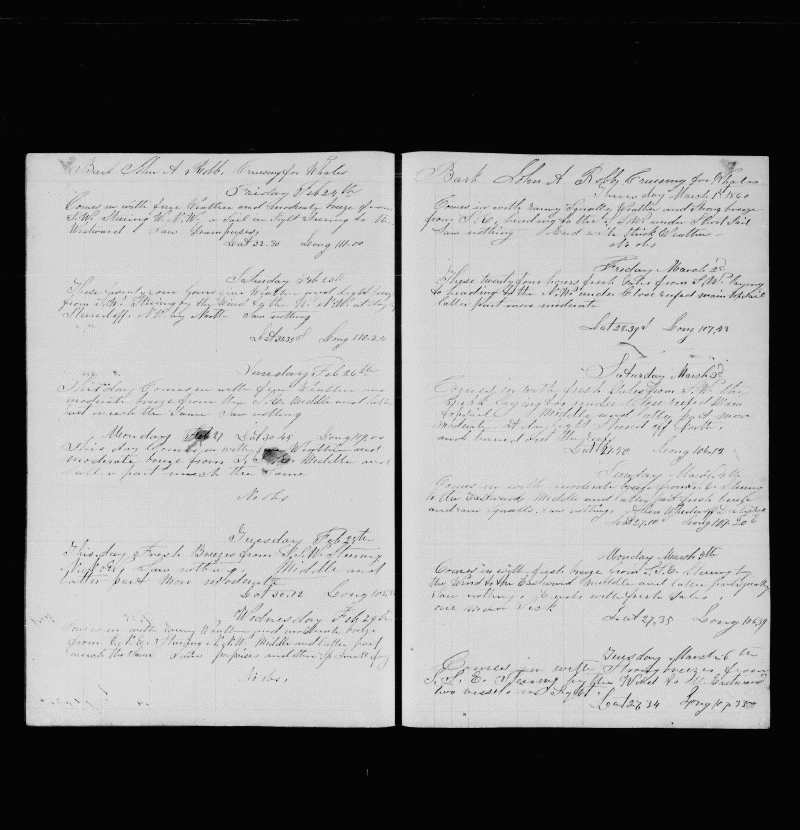 Bark John A Robb Cruising for Whales
Friday Feb 24th
Comes in with fine Weather and moderate breeze from
S.W. Stearing W.N.W. a Sail in Sight Stearing to the
Westward Saw Grampuses,
Lat 32.30 Long 111.00
Saturday Feb 25th
These twenty four hours fine Weather and light
from S.W. Stearing by the Wind to the N.W. at
Steared off N.W. by North Saw nothing
Long 110.24
Sunday Feb 26th
This day Comes in with fine Weather and
moderate breeze from the S.E. Middle and latter
part much the Same Saw nothing
Monday Feb 27 Lat 30.45 Long
This day Comes in with Weather and
moderate breeze from Middle and
latter part much the Same
No obs
Tuesday Feb 28th
This day Fresh Breezes from S.S.W. Stearing
Saw nothing, Middle and
latter part More moderate
Lat 30.12 Long
Wednesday Feb 29th
Comes in with Weather and moderate breeze
from Stearing Middle and latter part
much the Same Saw porpoise and other
No obs.
Bark John A Robb Cruising for Whales
Thursday March 1st 1860
Comes in with rainy Squally Weather and strong breeze
from S.E. heading to the S.W. under Short Sail
Saw nothing Ends with thick Weather
No obs
Friday March 2d
These twenty four hours fresh Gales from S.W. laying
to heading to the N.W. under Close reefed main topsail
latter part more moderate
Lat 28.39 S Long 107.43
Saturday March 3d
Comes in with fresh Gales from S.W. the
laying to under Close reefed Main
topsail Middle and latter part more
moderate at day light Steared off North
and turned out the reefs
Long 106.12
Sunday March 4th
Comes in with moderate breeze from Stearing
to the Eastward Middle and latter part fresh breeze
and rain Squalls. Saw nothing
Lat 27.10 Long 107.20
Monday March 5th
Comes in with fresh breeze from S.S.E. Stearing by
the Wind to the Eastward Middle and latter part Squally
Saw nothing. Ends with fresh Gales.
one man Sick
Lat 27.35 Long 106.39
Tuesday March 6th
Comes in with Strong breezes from
S.S.E. Stearing by the Wind to Eastward
two vessels in Sight.
Lat 27.34 Long 107.38